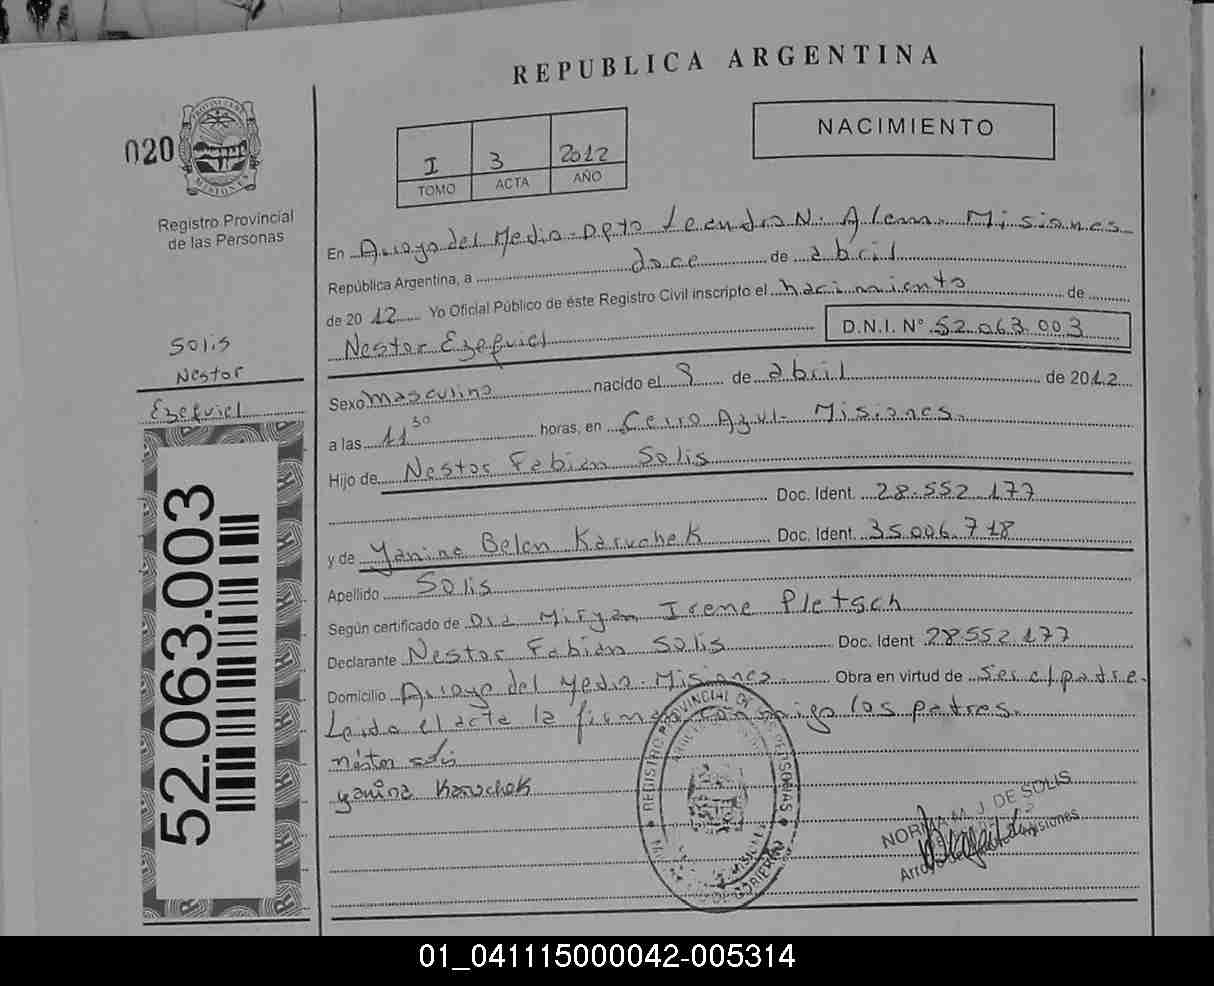 REPUBLICA ARGENTINA
020
Registro Provincial
de las Personas
I 3 2012
TOMO ACTA AÑO
NACIMIENTO
En Arroyo del Medio - Dpto Leandro N. Alem - Misiones
República Argentina, a doce de abril
de 2012 Yo Oficial Público de éste Registro Civil inscripto el nacimiento de
Nestor Ezequiel D.N.I. N° 52.063.003
Solis
Nestor
Ezequiel
52.063.003
Sexo masculino nacido el 9 de abril de 2012
a las 11 30 horas, en Cerro Azul - Misiones
Hijo de Nestor Fabian Solis
Doc. Ident. 28.552.177
y de Yanina Belen Karuchek Doc. Ident. 35.006.718
Apellido Solis
Según certificado de Dra Miryan Irene Pletsch
Declarante Nestor Fabian Solis Doc. Ident 28552.177
Domicilio Arroyo del Medio - Misiones Obra en virtud de ser el padre
Leida el acta la firman conmigo los padres.
néstor solis
yanina Karuchek
REGISTRO PROVINCIAL DE LAS PERSONAS
NORMA M. J. DE SOLIS
01_041115000042-005314